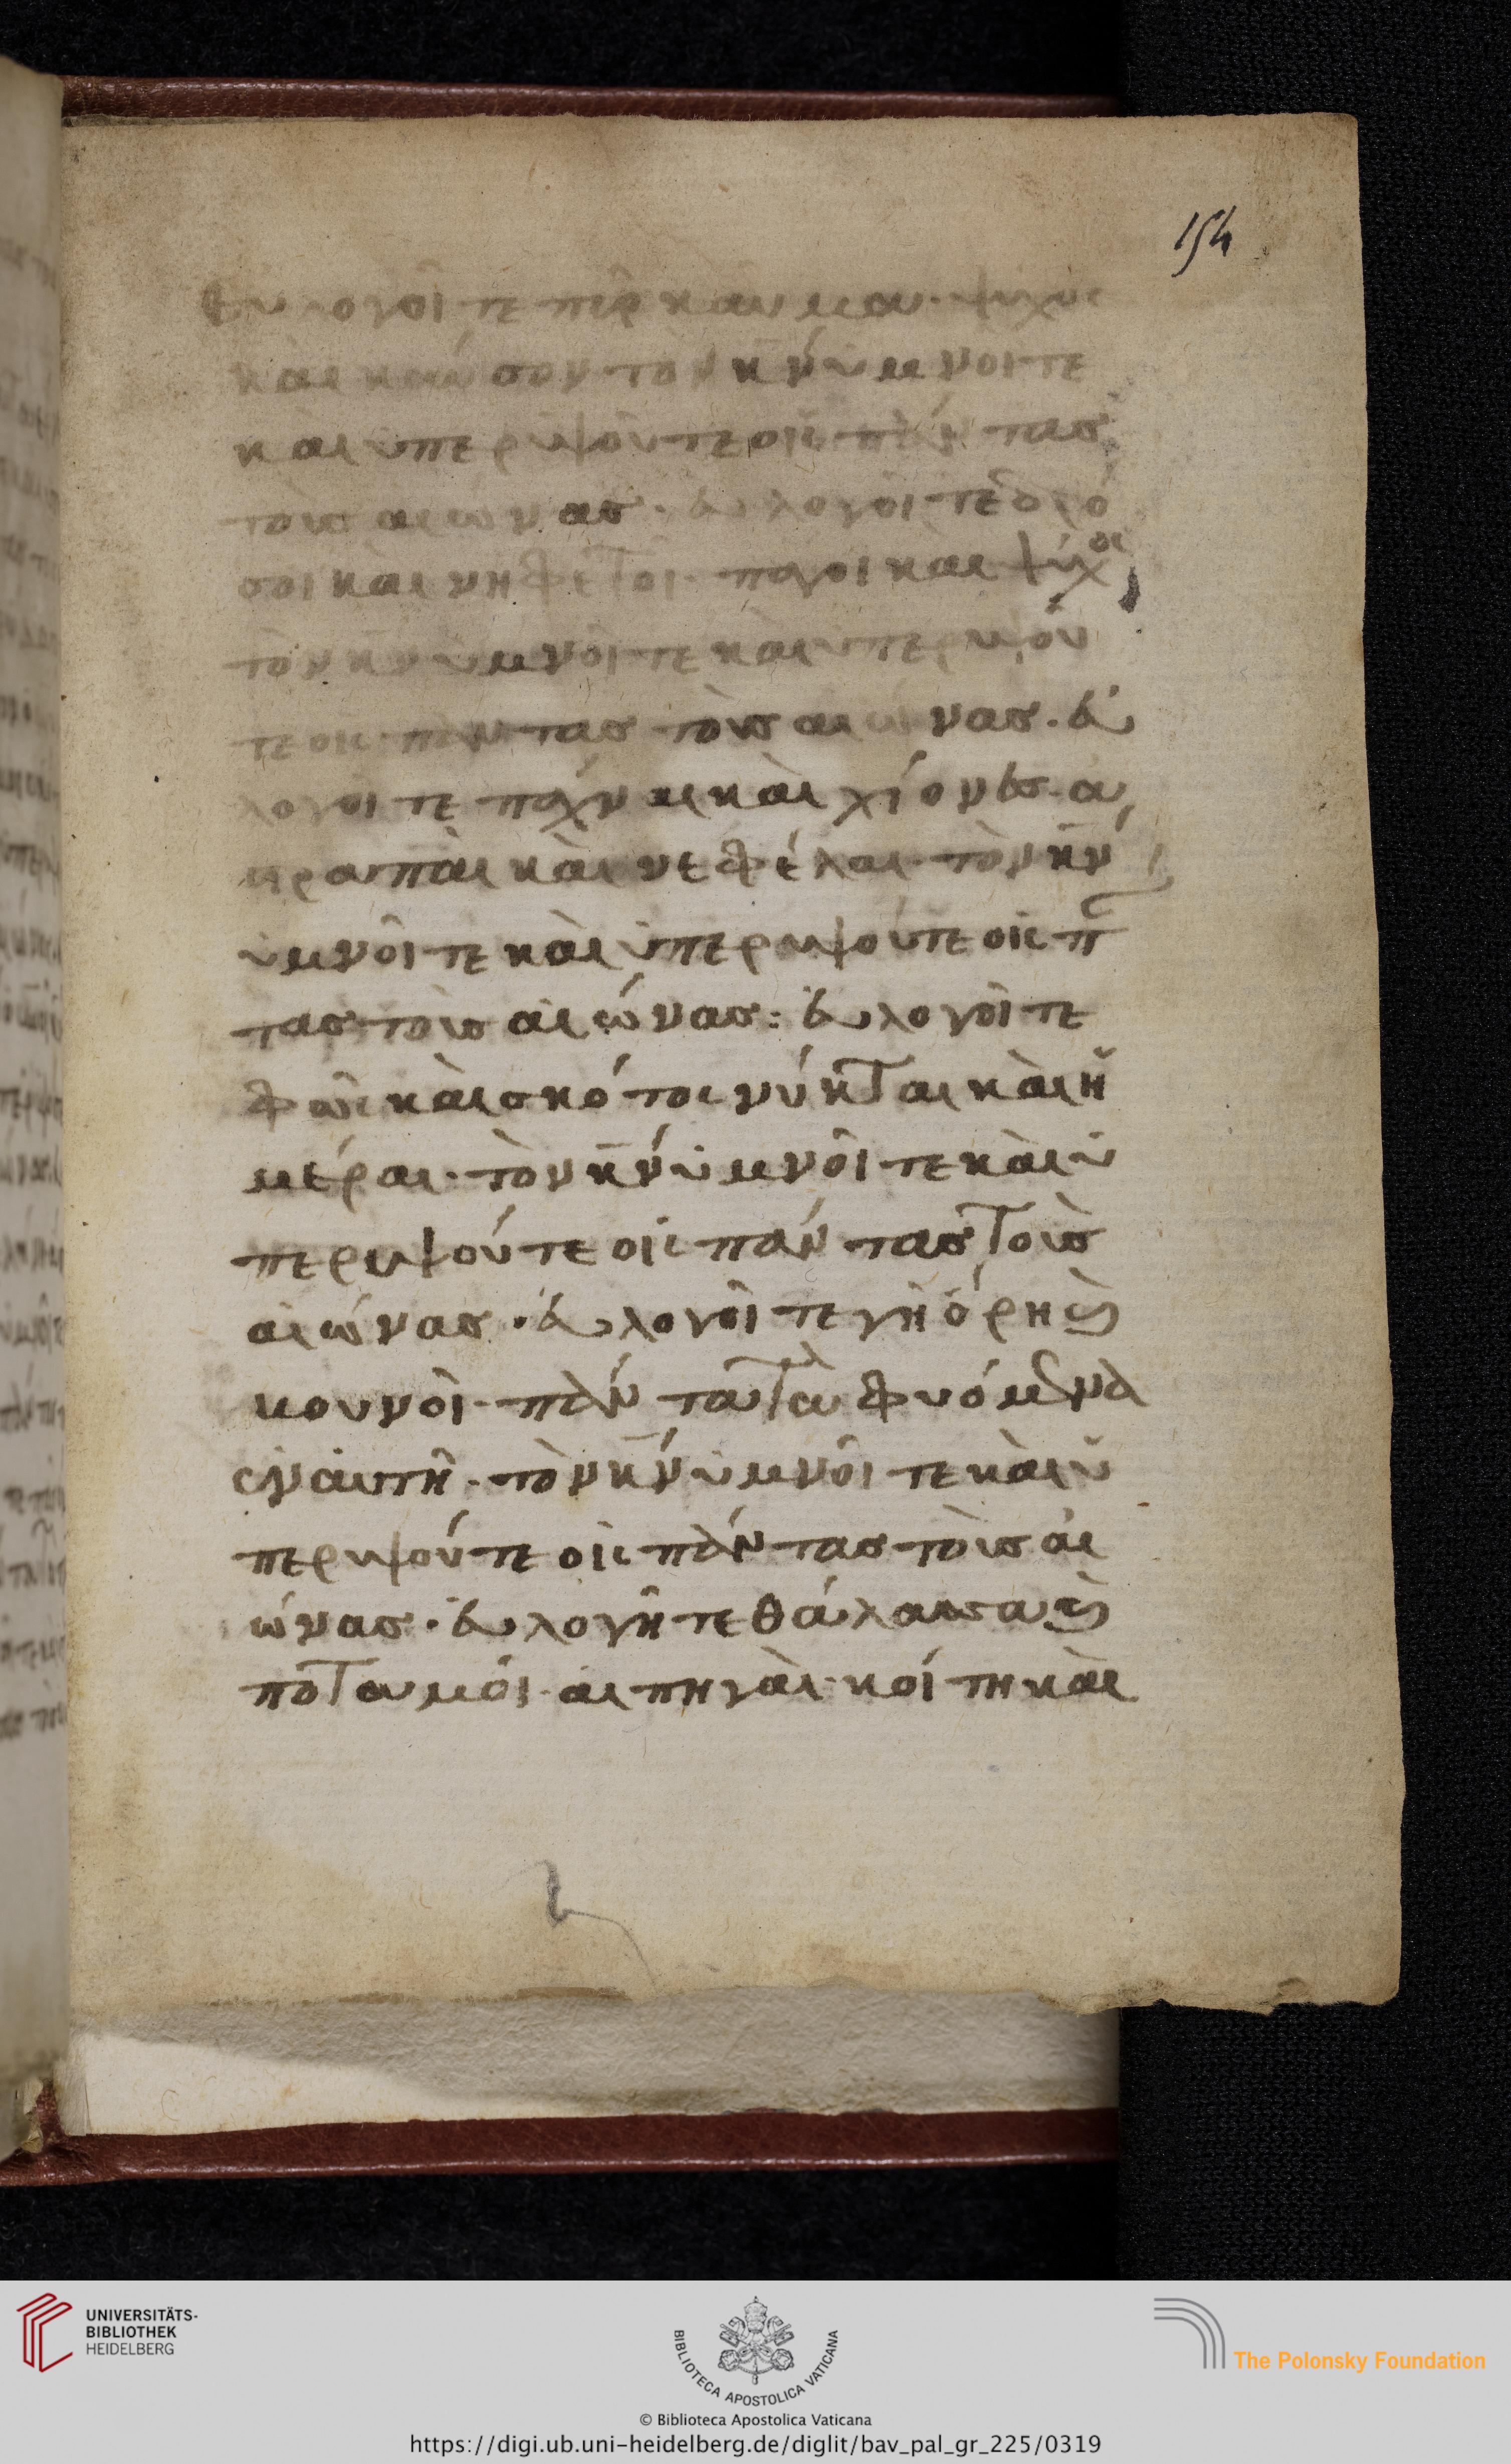 154
Ευλογοῖτε πῦρ καῦμα· ψύχος
καὶ καύσον· τὸν κ̅ν̅ ὑμνοῖτε
καὶ ὑπερυψοῦτε οἰς πάντας
τοὺς αιωνας· ευλογοῖτε δρό
σοι καὶ νηφετοί· παγοι καὶ ψύχος
τὸν κ̅ν̅ υμνοῖτε καὶ ὑπερυψοῦ
τε οις πάντας τοὺς αιωνας· εὐ
λογοῖτε παχναι καὶ χίονες· ἀ
στραπαὶ καὶ νεφέλαι· τὸν κ̅ν̅
ὑμνοῖτε καὶ ὑπερυψούτε οἰς π
τας τοὺς αἰώνας: εὐλογοῖτε
φῶς καὶ σκότος νύκται καὶ ἡ
μέραι· τὸν κ̅ν̅ ὑμνοῖτε καὶ ὑ
περυψούτε οἰς πάντας τοὺς
αἰώνας· εὐλογοῖτε γῆ ὄρη ϗ
κουνοῖ· πάντα τὰ φυόμενα
ἐν αὐτῆ· τὸν κ̅ν̅ ὑμνοῖτε καὶ ὑ
περυψούτε οἰς πάντας τοὺς αἰ
ώνας· εὐλογῆτε θάλασσα ϗ
ποταμοῖ· αἱ πηγαὶ· κοίτη καὶ
UNIVERSITÄTS-
BIBLIOTHEK
HEIDELBERG
BIBLIOTECA APOSTOLICA VATICANA
The Polonsky Foundation
© Biblioteca Apostolica Vaticana
https://digi.ub.uni-heidelberg.de/diglit/bav_pal_gr_225/0319